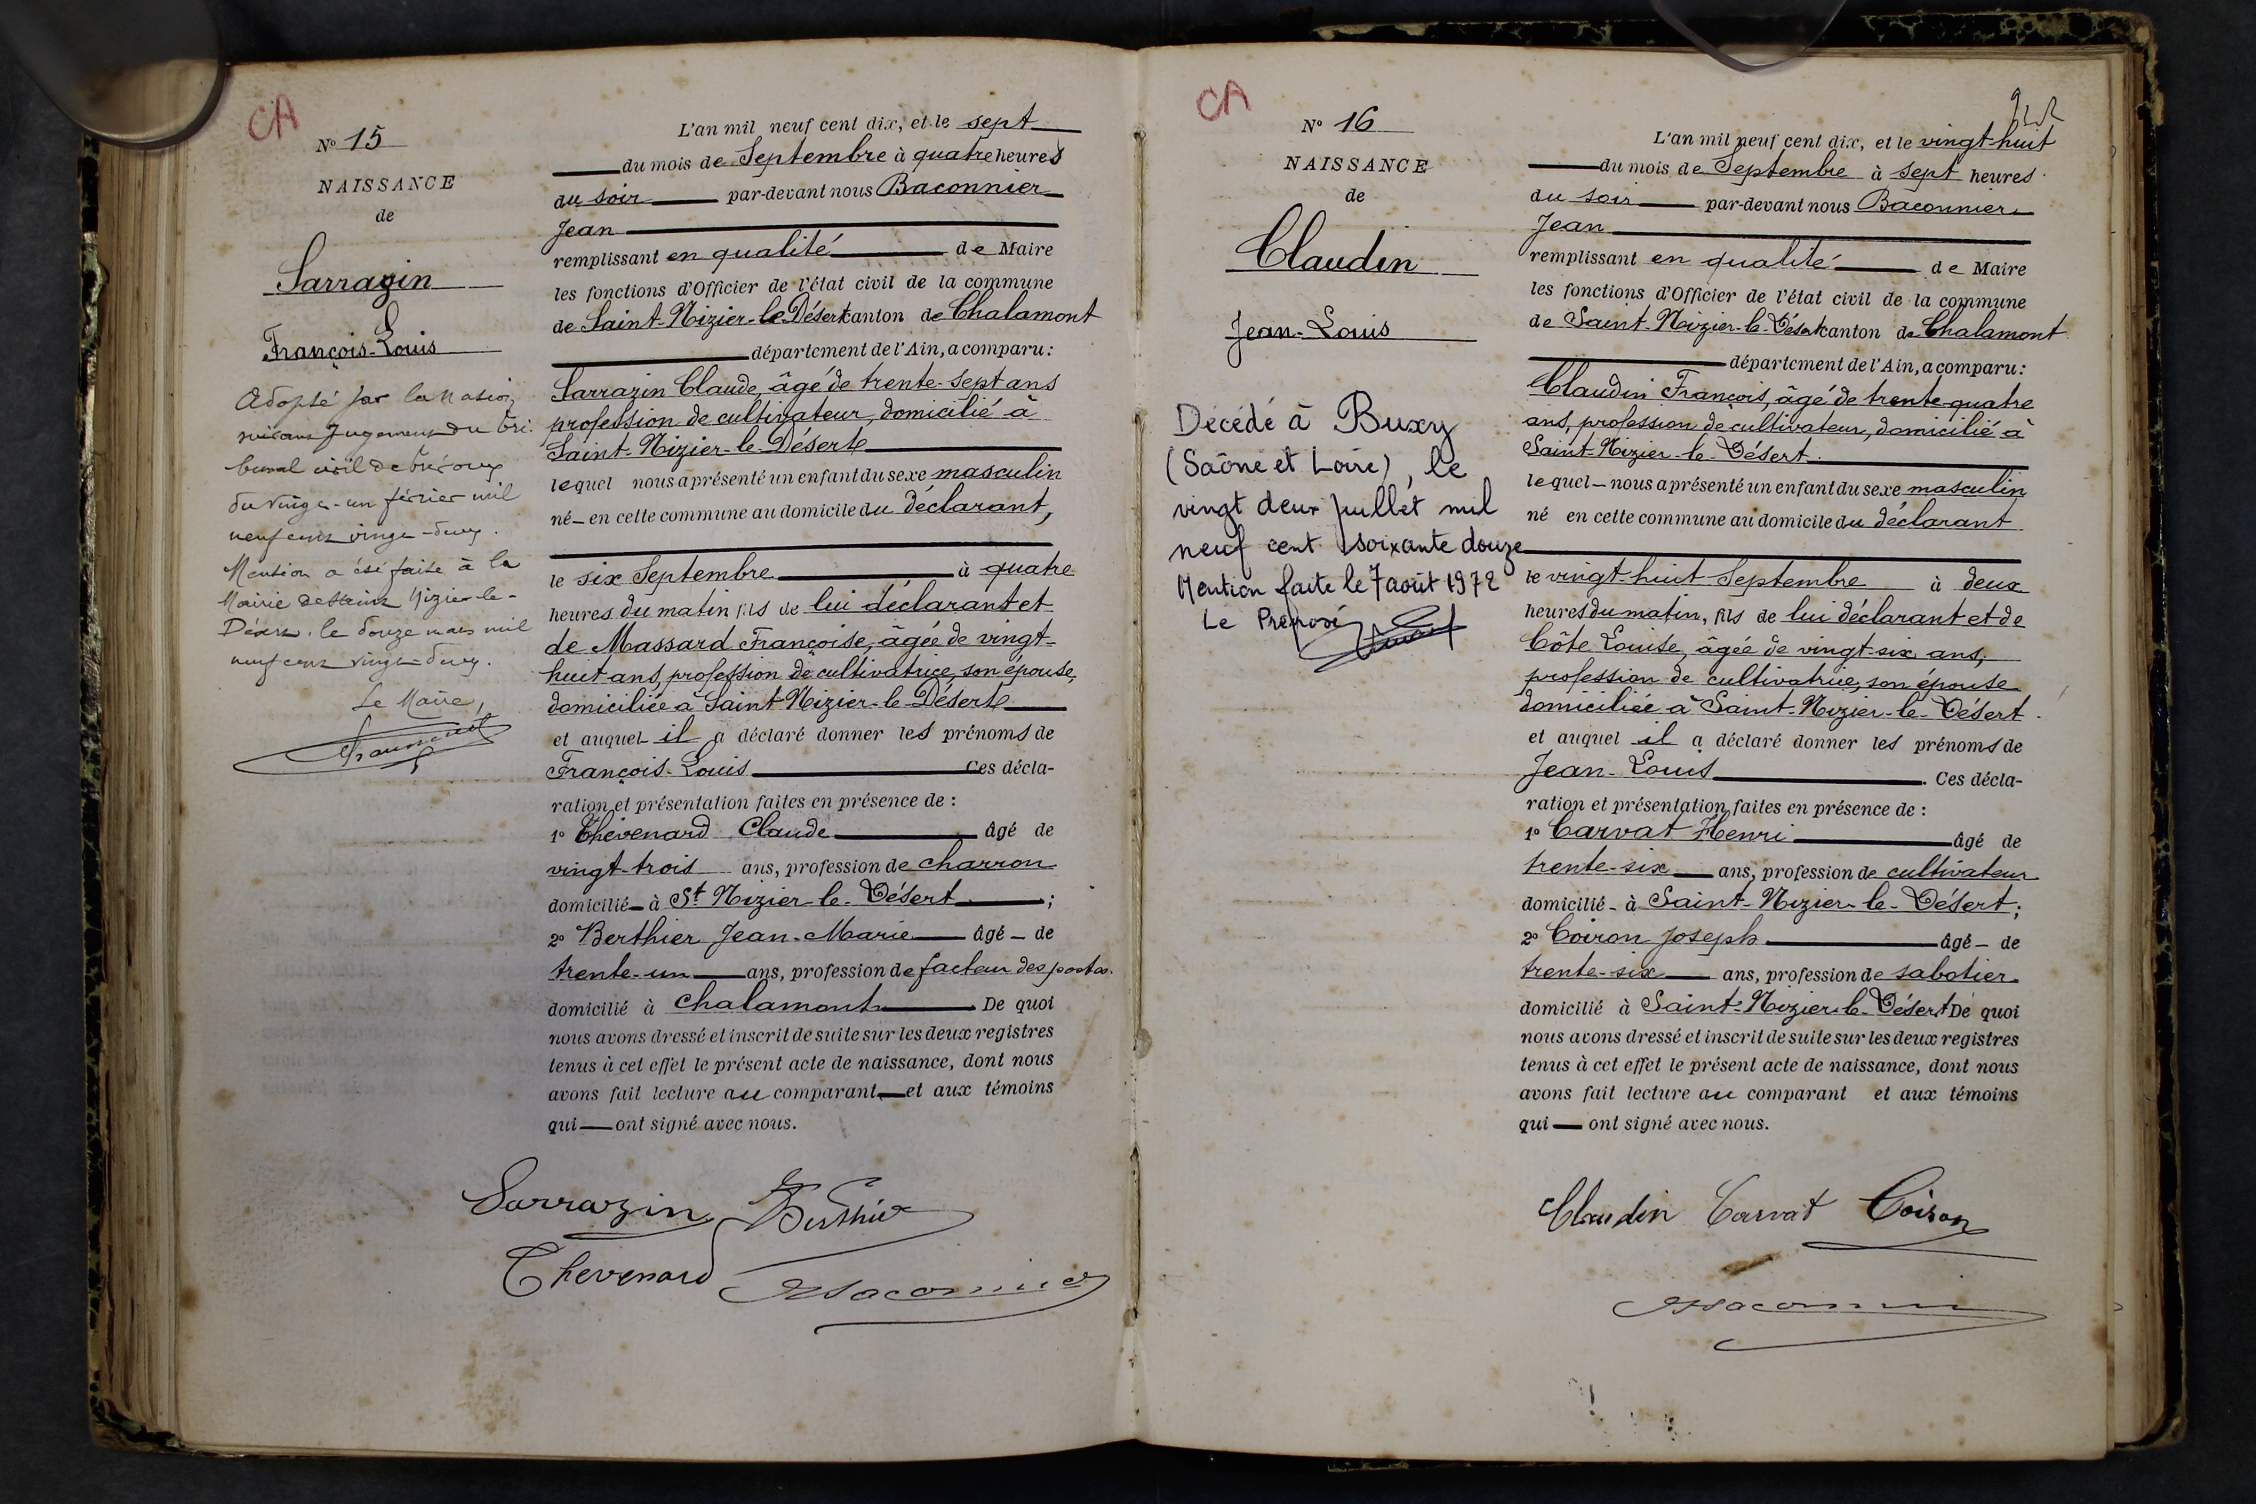 CA
N° 15
NAISSANCE
de
Sarrazin
François-Louis
Adopté par la Nation,
suivant Jugement du Tri-
bunal civil de Trévoux
du vingt-un février mil
neuf cent vingt-deux.
Mention a été faite à la
Mairie de Saint Nizier-le-
Désert le douze mars mil
neuf cent vingt-deux.
Le Maire,
L'an mil neuf cent dix, et le sept
du mois de Septembre à quatre heures
du soir par-devant nous Baconnier
Jean
remplissant en qualité de Maire
les fonctions d'Officier de l'état civil de la commune
de Saint-Nizier-le-Désert canton de Chalamont
département de l'Ain, a comparu:
Sarrazin Claude, âgé de trente-sept ans
profession de cultivateur, domicilié à
Saint-Nizier-le-Désert
lequel nous a présenté un enfant du sexe masculin
né en cette commune au domicile du déclarant,
le six Septembre à quatre
heures du matin fils de lui déclarant et
de Massard Françoise, âgée de vingt-
huit ans, profession de cultivatrice, son épouse,
domiciliée à Saint Nizier-le-Désert
et auquel il a déclaré donner les prénoms de
François-Louis Ces décla-
ration et présentation faites en présence de :
1° Thévenard Claude âgé de
vingt-trois ans, profession de charron
domicilié à St Nizier-le-Désert ;
2° Berthier Jean-Marie âgé de
trente-un ans, profession de facteur des postes.
domicilié à Chalamont De quoi
nous avons dressé et inscrit de suite sur les deux registres
tenus à cet effet le présent acte de naissance, dont nous
avons fait lecture au comparant et aux témoins
qui ont signé avec nous.
Sarrazin Berthier
Thevenard Baconnier
CA
N° 16
NAISSANCE
de
Claudin
Jean-Louis
Décédé à Buxy
(Saône et Loire), le
vingt deux juillet mil
neuf cent soixante douze
Mention faite le 7 août 1972
Le Préposé
L'an mil neuf cent dix, et le vingt-huit
du mois de Septembre à sept heures
du soir par-devant nous Baconnier
Jean
remplissant en qualité de Maire
les fonctions d'Officier de l'état civil de la commune
de Saint-Nizier-le-Désert canton de Chalamont
département de l'Ain, a comparu:
Claudin François, âgé de trente-quatre
ans, profession de cultivateur, domicilié à
Saint-Nizier-le-Désert.
lequel nous a présenté un enfant du sexe masculin
né en cette commune au domicile du déclarant
le vingt-huit Septembre à deux
heures du matin, fils de lui déclarant et de
Côte Louise, âgée de vingt-six ans,
profession de cultivatrice, son épouse
domiciliée à Saint-Nizier-le-Désert.
et auquel il a déclaré donner les prénoms de
Jean-Louis. Ces décla-
ration et présentation faites en présence de :
1° Carvat Henri âgé de
trente-six ans, profession de cultivateur
domicilié à Saint-Nizier-le-Désert;
2° Coiron Joseph âgé de
trente-six ans, profession de sabotier
domicilié à Saint-Nizier-le-Désert De quoi
nous avons dressé et inscrit de suite sur les deux registres
tenus à cet effet le présent acte de naissance, dont nous
avons fait lecture au comparant et aux témoins
qui ont signé avec nous.
Claudin Carvat Coiron
Baconnier